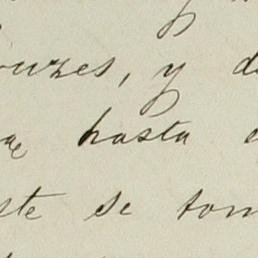 y
ouzes, y d
hasta
ste se tom